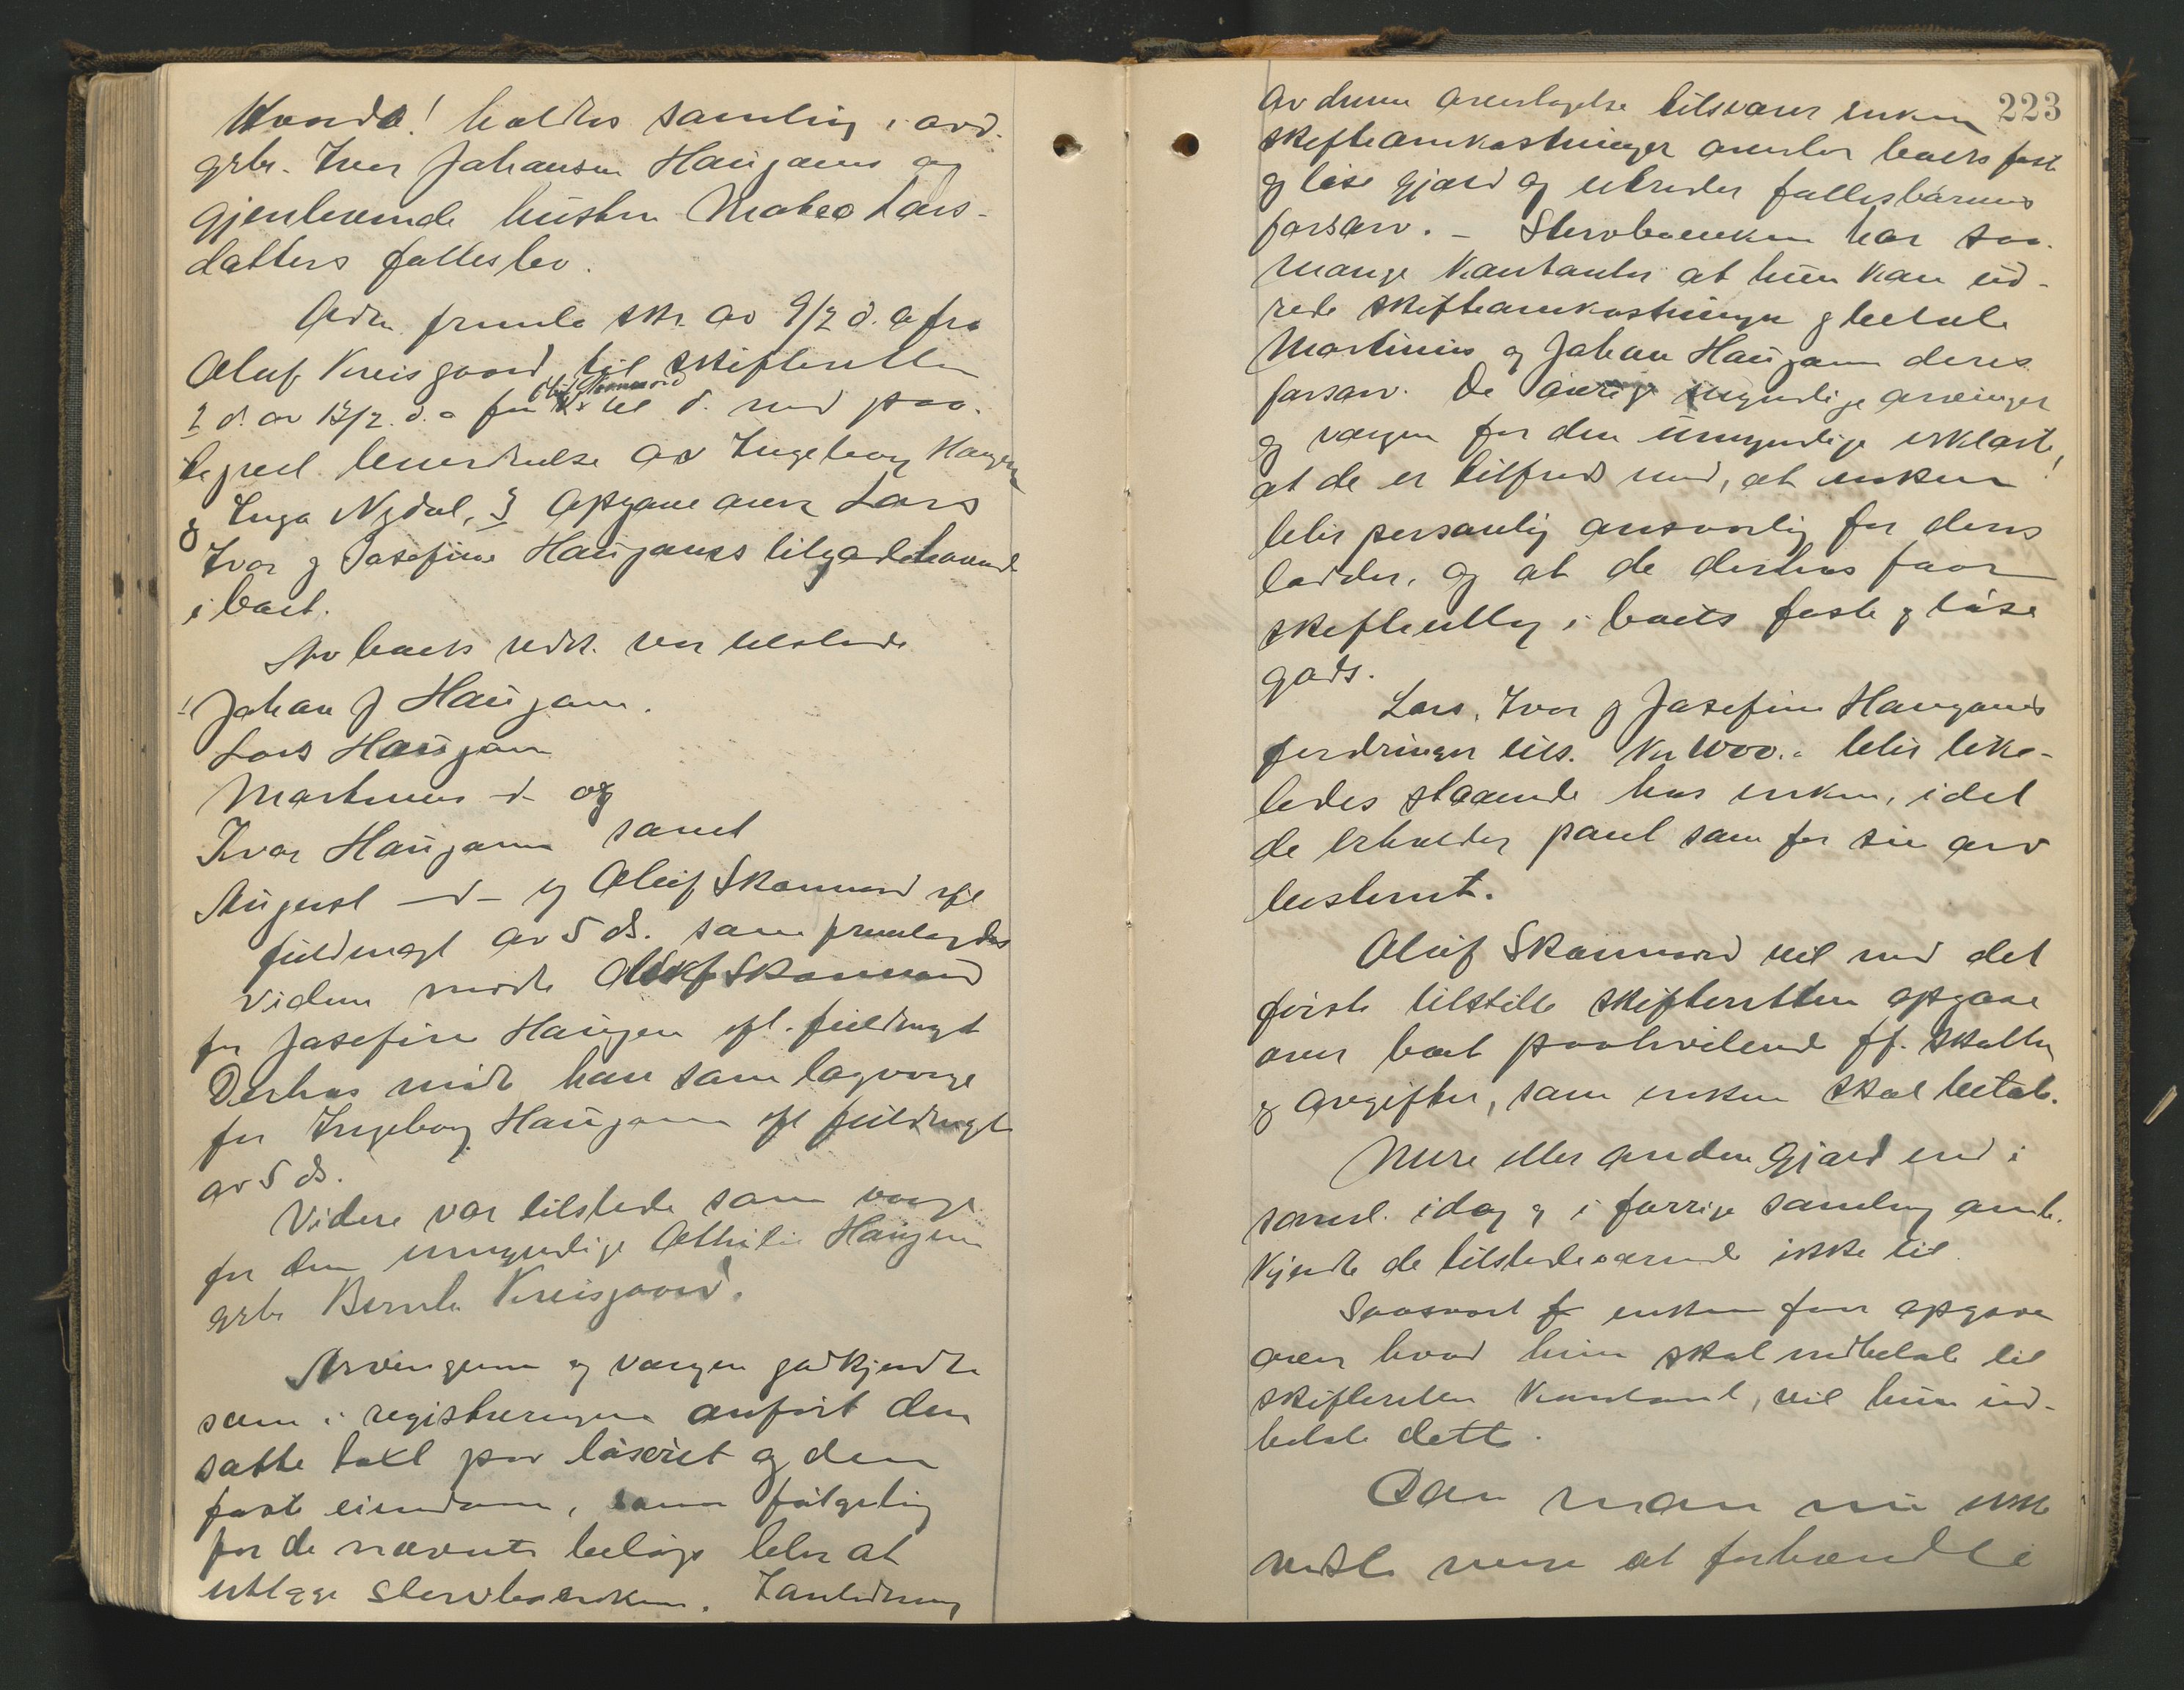 holdtes samling i avd.
grbr. Iver Johansen Haugans og
gjenlevende hustru Matea Lars-
datters fællesbo.
Adm. freml. skr. av 9/2 d. a fra
Oluf Kveisgaard til skifteretten
2 d. av 13/2 d. a fra til d. med paa-
tegnet av Ingeborg Haugan
og Inga Nydal, 3 Opgave over Lars
Ivar og Josefine Haugans tilgodehavende
i boet.
Av boets vedk. var tilstede
1 Johan J Haugan.
Lars Haugan
Martinus -d- og
Ivar Haugan samt
August -d- og Oluf Skannord ifl
fuldmagt av 5 ds. som fremlagdes
Videre mødte Oluf Skannord
for Josefine Haugen ifl. fuldmagt
Derhos mødte han som lagverge
for Ingeborg Haugan ifl fuldmagt
av 5 ds.
Videre var tilstede som verge
for den umyndige Haugan
grbr Bernt Kveisgaard.
Arvingerne og vergen godkjendte
som i registreringen anført den
satte taxt paa løsøret og den
faste eiendom, som følgelig
for de nævnte beløp blir at
utlægge stervboenken. I anledning
223
Av denne overtagelse tilsvarer enken
skifteomkostninger overtar boets faste
og løse gjæld og utreder fællesbarnens
farsarv. - Stervboenken har saa
mange kontanter at hun kan ud-
rede skifteomkostninger og betale
Martinus og Johan Haugan deres
farsarv. De øvrige myndige arvinger
og vergen for den umyndige erklærte,
at de er tilfreds med, at enken
blir personlig ansvarlig for deres
lodder, og at de derhos faar
skifteutlæg i boets faste og løse
gods.
Lars, Ivar og Josefine Haugans
fordringer tils. Kr 1000.- blir like-
ledes staaende hos enken, idet
de erholder pant som for sin arv
bestemt.
Oluf Skannord vil med det
første tilstille skifteretten opgave
over boet paahvilende ff. skatter
og avgifter, som enken skal betale.
Mere eller anden gjæld end i
saml. idag og i forrige samling omh.
kjendte de tilstedeværende ikke til
Saasnart enken faar opgave
over hvad hun skal indbetale til
skifteretten kontant, vil hun ind-
betale dette.
Da man nu ikke
vidste mere at forhandle